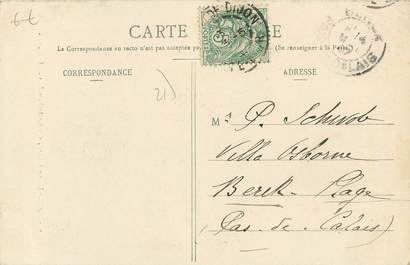 6€
CARTE
La Correspondance au recto n'est pas acceptée pa (Se renseigner à la Poste)
CORRESPONDANCE
ADRESSE
DIJON
CALAIS
21)
M P. Schwob
Villa Osborne
Berck-Plage
(Pas-de-Calais)